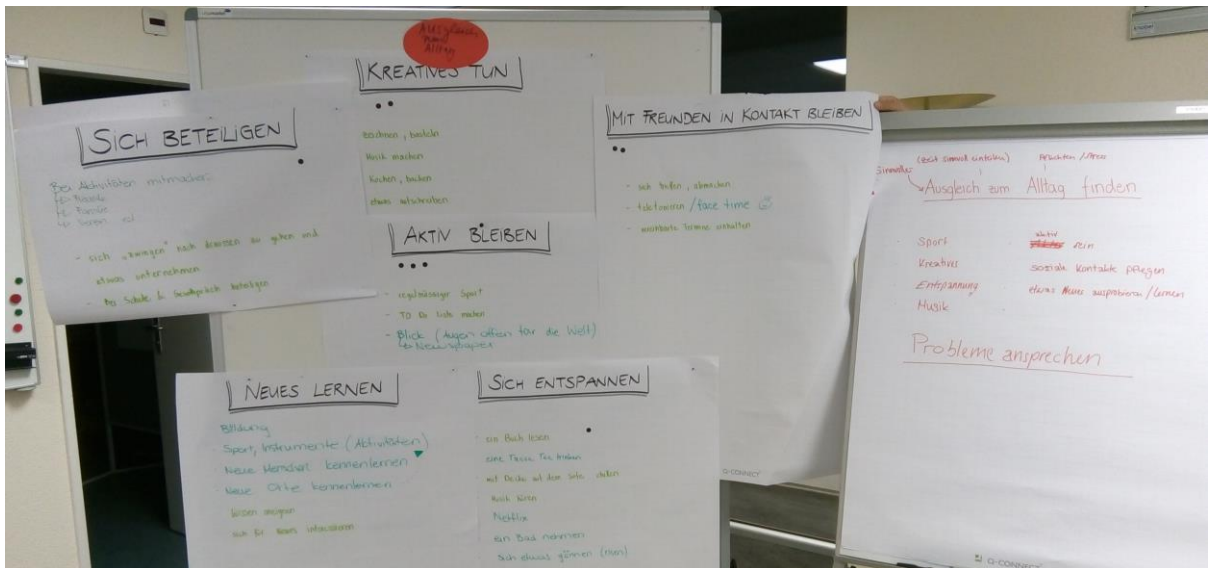 Ausgleich
zum
Alltag
KREATIVES TUN
zeichnen, basteln
Musik machen
Kochen, backen
etwas
SICH BETEILIGEN
Bei Aktivitäten mitmachen
- sich "zwingen" nach draussen zu gehen und
etwas unternehmen
- An Schule & beteiligen
MIT FREUNDEN IN KONTAKT BLEIBEN
- sich treffen, abmachen
- telefonieren / face time
- Termine einhalten
AKTIV BLEIBEN
- regelmässiger Sport
- TO Do Liste machen
- Blick (Augen offen für die Welt)
NEUES LERNEN
Bildung
Sport, Instrumente (Aktivitäten)
Neue Menschen kennenlernen
Neue Orte kennenlernen
Wissen aneignen
sich für Neues interessieren
SICH ENTSPANNEN
ein Buch lesen
eine Tasse Tee trinken
mit Decke auf dem Sofa chillen
Musik hören
Netflix
ein Bad nehmen
Sich etwas gönnen
Q-CONNECT
(Zeit sinnvoll einteilen)
sinnvoller
Ausgleich zum Alltag finden
Sport
aktiv
sein
Kreatives
soziale Kontakte pflegen
Entspannung
etwas Neues ausprobieren / Lernen
Musik
Probleme ansprechen
Q-CONNECT